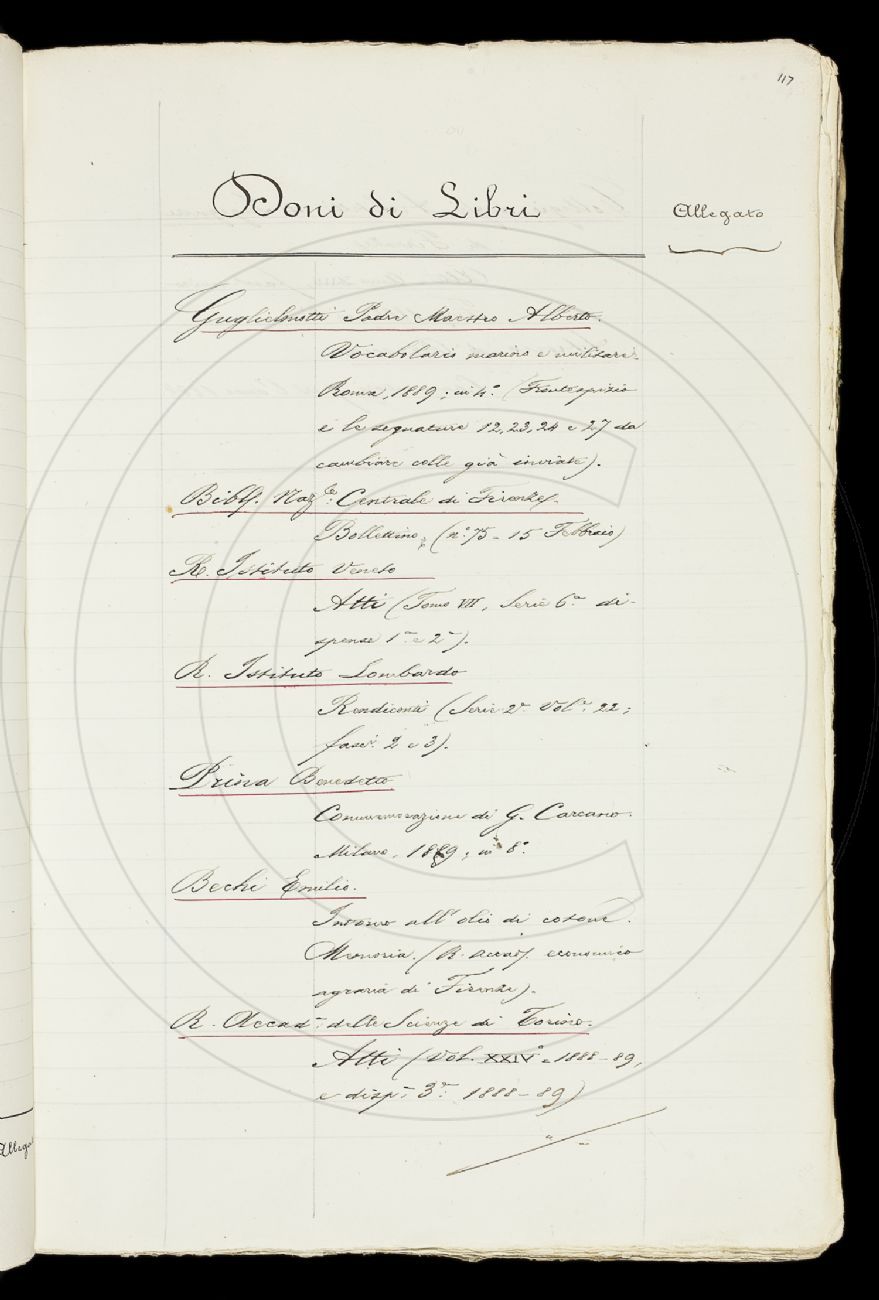 117
Doni di Libri
Allegato
Guglielmotti Padre Maestro Alberto.
Vocabolario marino e militare.
Roma, 1889; in 4.° (Frontespizio
e le segnature 12, 23, 24 e 27 da
cambiare colle già inviate).
Bibl. Naz.le Centrale di Firenze.
Bollettino, (n.° 75 - 15 Febbraio)
R. Istituto Veneto
Atti (Tomo VII, Serie 6.a di-
spense 1.a e 2.a).
R. Istituto Lombardo
Rendiconti (Serie 2.a Vol.e 22;
fasc.i 2 e 3).
Prina Benedetto
Commemorazione di G. Carcano.
Milano, 1889; in 8.°
Bechi Emilio.
Intorno all'olio di cotone.
Memoria. (R. Accad. economico
agraria di Firenze).
R. Accad.a delle Scienze di Torino.
Atti (Vol. XXIV° 1888-89,
e disp.a 3.a 1888-89)
Allega